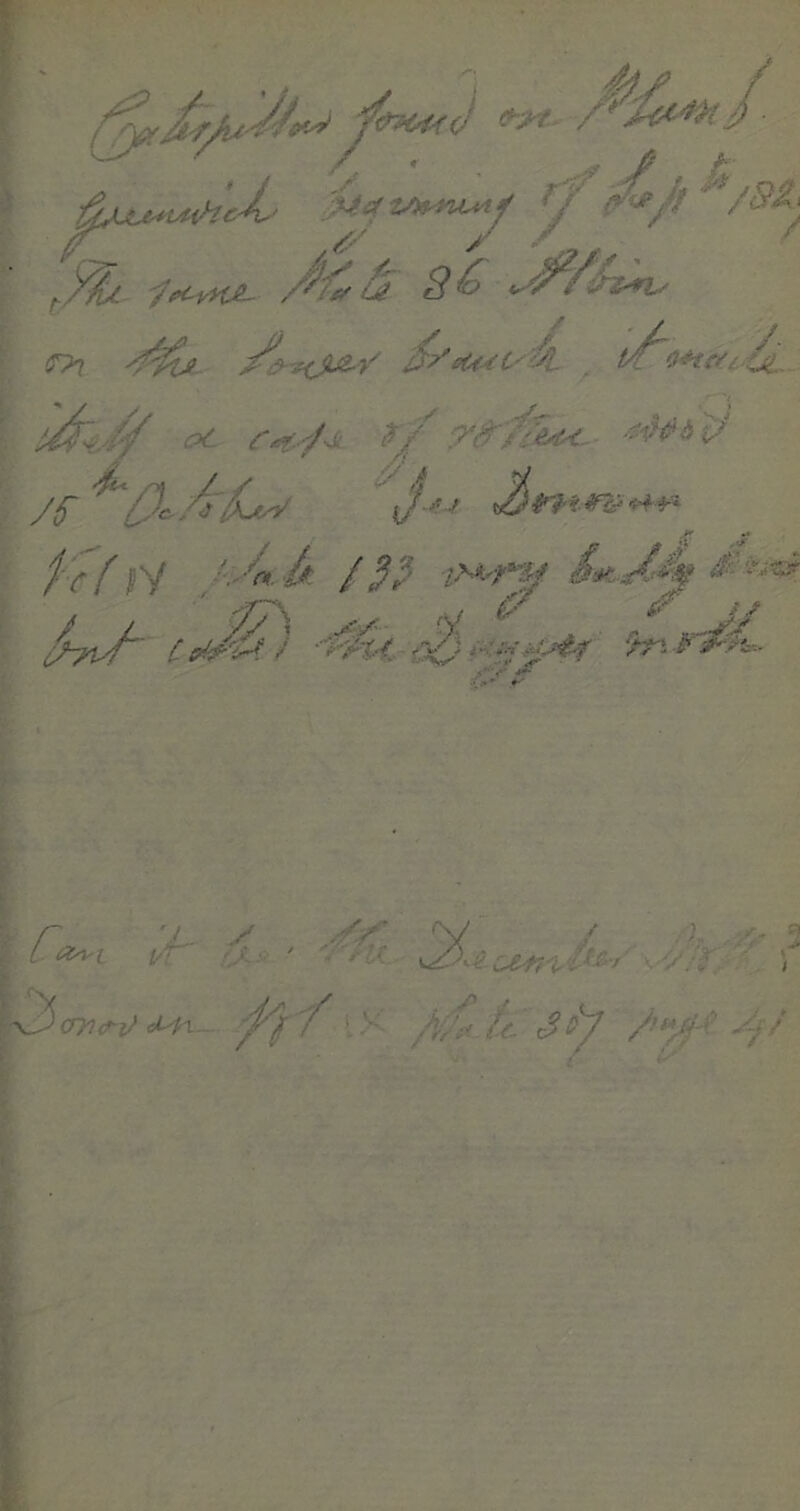 Caterpillar found on Plum /.
Greenwich beginning of Sept 182
The same Plate 86 Albin
on the lower branch. It made
itself a case of yellow silk
15th October See Donovan
Vol IV Plate 133 very badly done
but called the Dagger moth
Can it be the December Moth?
Donovan Vol IX Plate 307 page 41